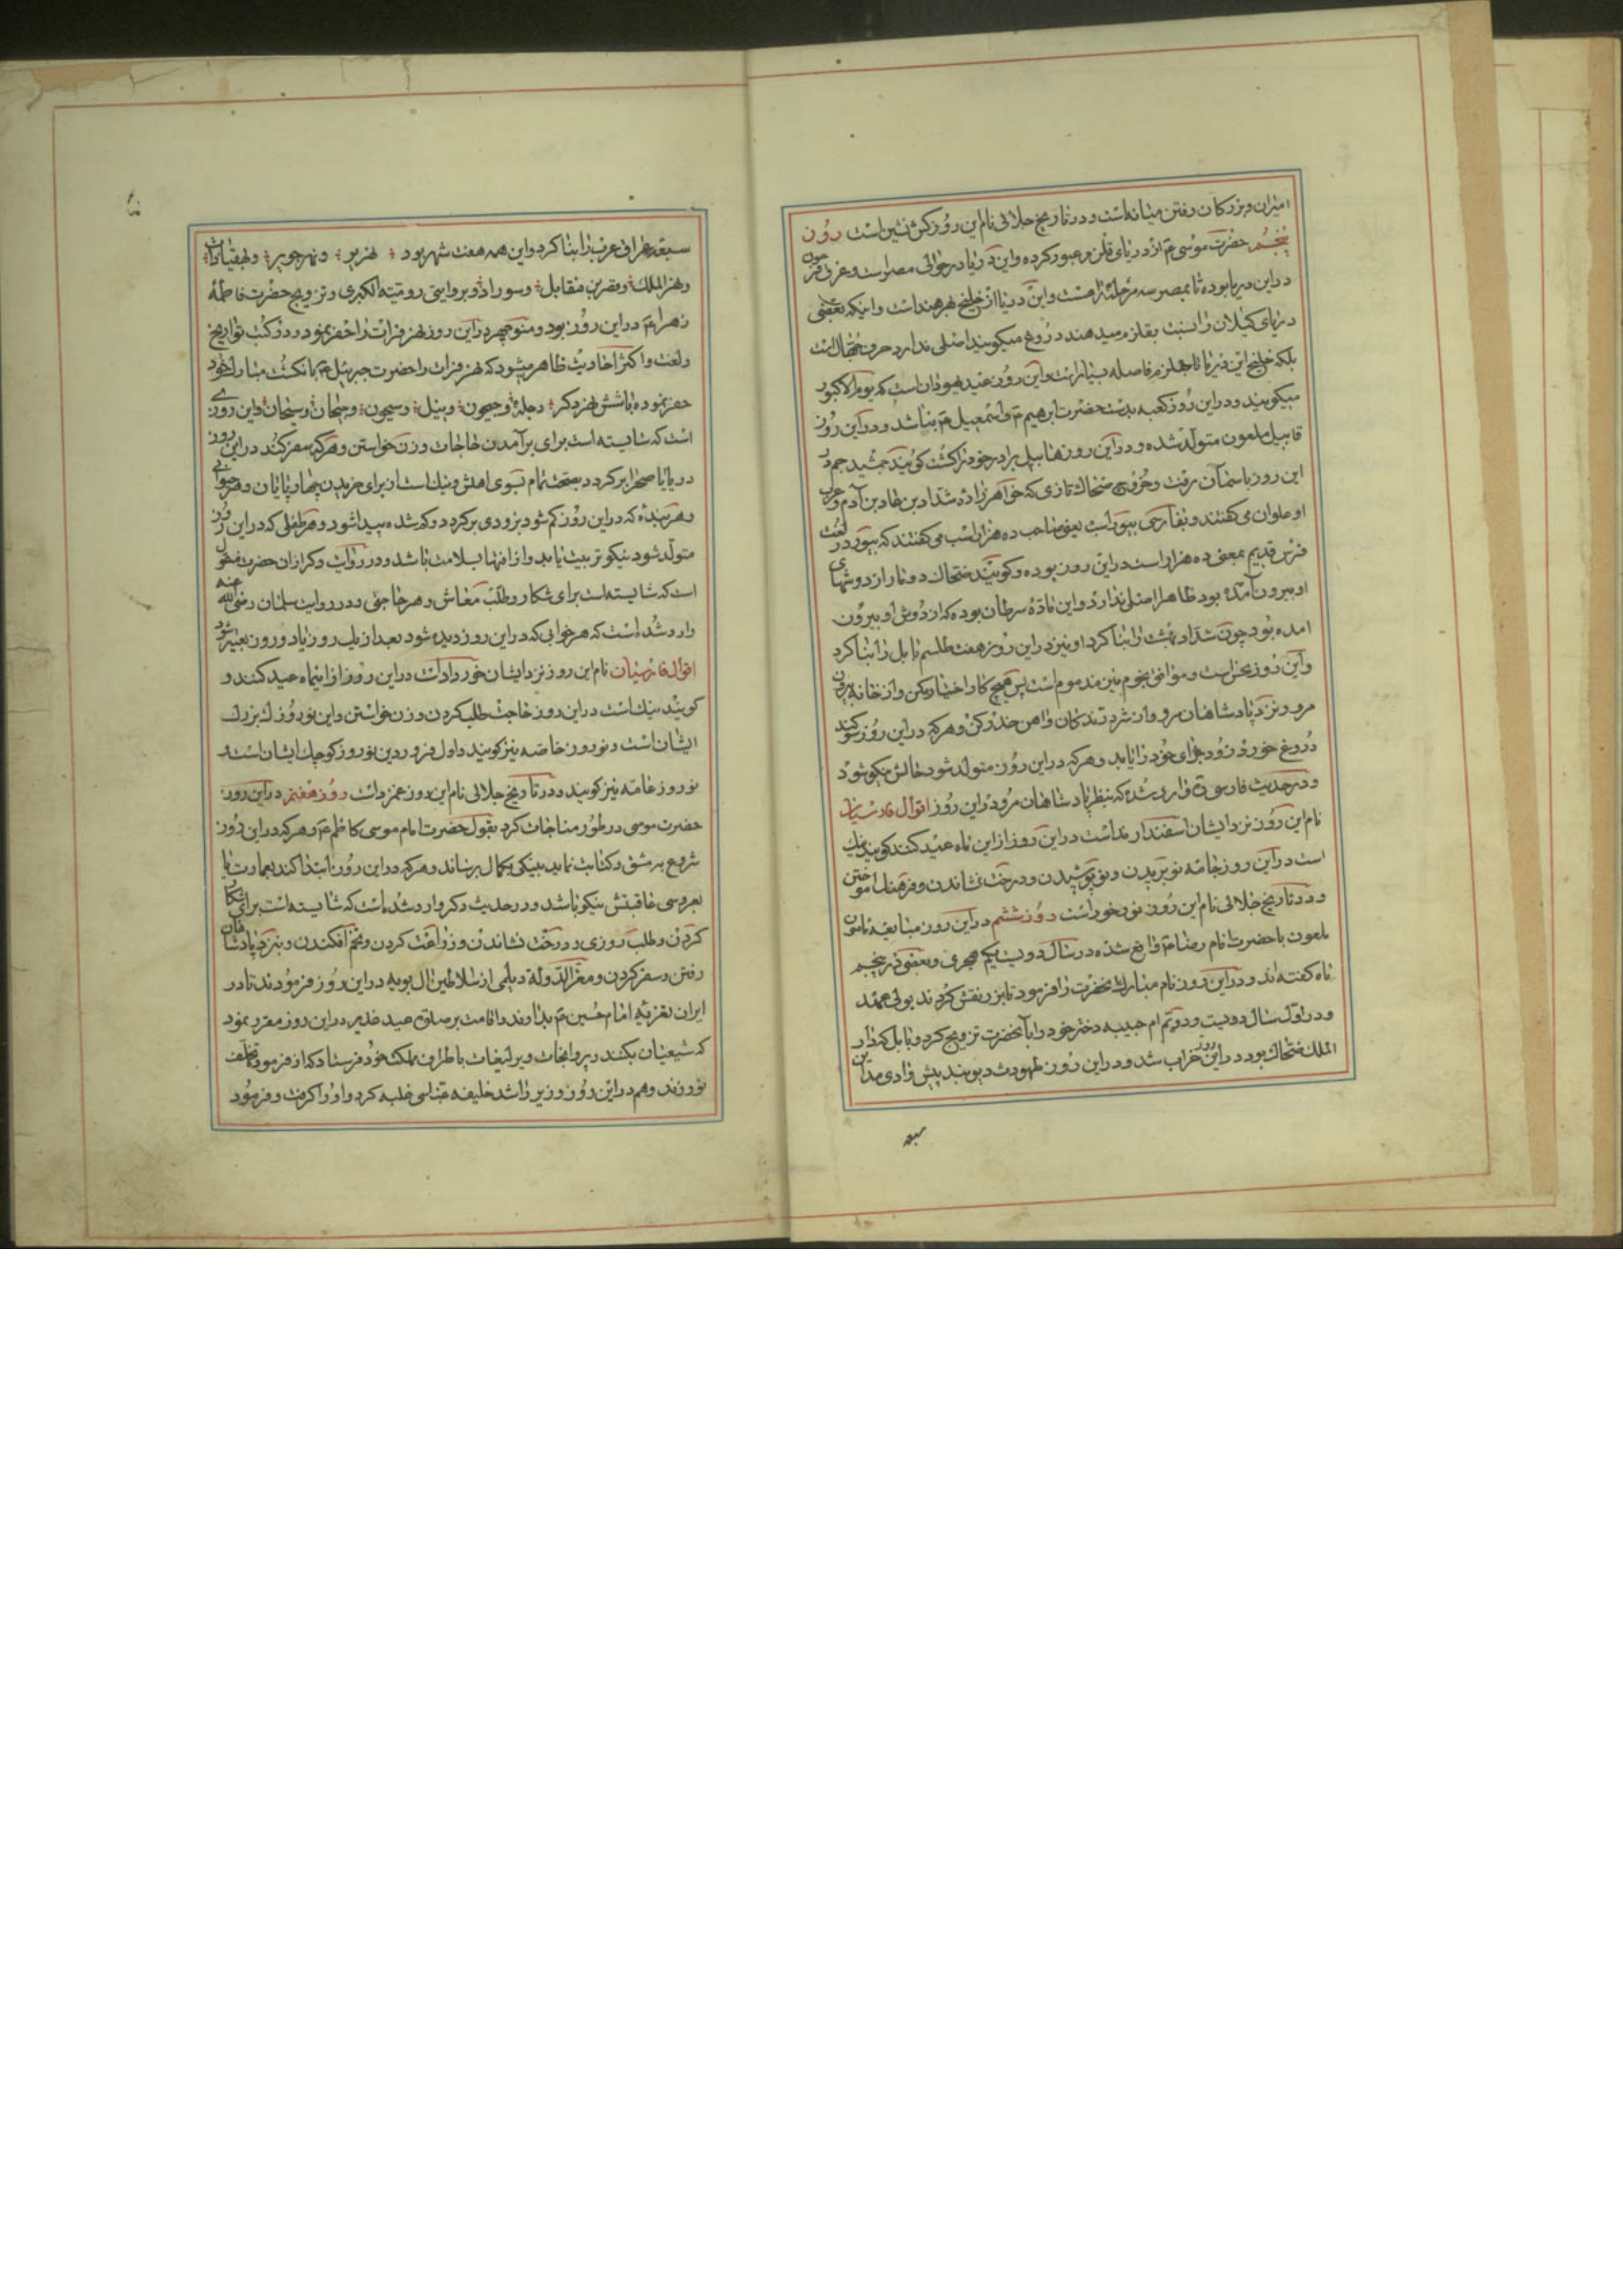 امیران و بزرکان رفتن میانه است و در تاریخ جلالی نام این روز کش نشین است روز
پنجم حضرت موسی ع از دریای قلزم عبور کرده و این دریا در حوالی مصر است و غرق فرعون
در این دریا بوده تا بمصر سه مرحله راهست و این دریا از خلیج بحر هند است و اینکه بعضی
دریای کیلان را نسبت بقلزم میدهند دروغ میکویند اصلی ندارد حرف جهال است
بلکه خلیج این دریا تا بقلزم فاصله بسیار است و این روز عید یهودان است که یوم الاکبور
میکویند و در این روز کعبه بدست حضرت ابرهیم ع و اسمعیل ع بنا شد و در این روز
قابیل ملعون متولد شده و در این روز هابیل برادر خود را کشت کویند جمشید جم در
این روز باسمان رفت و خروج ضحاک تازی که خواهرزاده شداد بن عاد بن آدم و عرب
او علوان می کفتند و بفارسی بیوراسب یعنی صاحب ده هزار اسب می کفتند که بیور در لغت
فرس قدیم بمعنی ده هزار است در این روز بوده و کویند ضحاک دو مار از دوشهای
او بیرون آمده بود ظاهرا اصلی ندارد و این ماده سرطان بوده که از دوش او بیرون
امده بود چون شداد بهشت را بنا کرد او نیز در این روز هفت طلسم بابل را بنا کرد
و این روز نحس است و موافق نجوم نیز مذموم است پس هیچ کار اختیار مکن و از خانه بیرون
مرو و نزد پادشاهان مرو و از شر درندکان و اهن حذر کن و هرکه در این روز سوکند
دروغ خورد زود جزای خود را یابد و هرکه در این روز متولد شود حالش نیکو شود
و در حدیث فارسی وارد شده که بنظر پادشاهان مرو در این روز اقوال فارسیان
نام این روز نزد ایشان اسفندارمذ است در این روز از این ماه عید کنند کویند نیک
است در این روز جامه نو بریدن و نو پوشیدن و درخت نشاندن و فرهنک اموختن
و در تاریخ جلالی نام این روز نوذخور است روز ششم در این روز مبایعه مامون
ملعون با حضرت امام رضا ع واقع شده در سال دویست یکم هجری و بعضی در پنجم
ماه کفته اند و در این روز نام مبارک آنحضرت را فرمود تا بزر نقش کردند بولی عهد
و در اول سال دویست و دویم ام حبیبه دختر خود را بآنحضرت تزویج کرد و بابل که دار
الملک ضحاک بود در این روز خراب شد و در این روز طهمورث دیوبند پیش وادی مداین
سبعه
سبعه عراق عرب را بنا کرد و این همه هفت شهر بود نهر بیر و نهر جوبر و بهقیاباد
و نهر الملک و مقرین مقابل و سوراد و بروایتی رومیة الکبری و تزویج حضرت فاطمهٔ
زهرا ع در این روز بود و منوچهر در این روز نهر فرات را حفر نمود و در کتب تواریخ
و لغت و اکثر احادیث ظاهر میشود که نهر فرات را حضرت جبرئیل ع بانکشت مبارک خود
حفر نموده با شش نهر دکر دجله و جیحون و نیل و سیحون و جیحان و سیحان و این روزی
است که شایسته است برای برآمدن حاجات و زن خواستن و هرکه سفر کند در این روز
در دریا یا صحرا بر کردد بصحت تمام بسوی اهلش و نیک است از برای خریدن چهارپایان و هر حیوانی
و هر بنده که در این روز کم شود بزودی بر کردد و کم شده پیدا شود و هر طفلی که در این روز
متولد شود نیکو تربیت یابد و از افتها بسلامت باشد و در روایت دکر از ان حضرت منقول
است که شایسته است برای شکار و طلب معاش و هر حاجتی و در روایت سلمان رضی الله عنه
وارد شده است که هر خوابی که در این روز دیده شود بعد از یک روز یا دو روز تعبیر شود
اقوال فارسیان نام این روز نزد ایشان خورداد است در این روز از اینماه عید کنند و
کویند نیک است در این روز حاجت طلب کردن و زن خواستن و این نوروز بزرک
ایشان است و نوروز خاصه نیز کویند و اول فروردین نوروز کوچک ایشان است که
نوروز عامه نیز کویند و در تاریخ جلالی نام این روز عمزداست روز هفتم در این روز
حضرت موسی در طور مناجات کرد بقول حضرت امام موسی کاظم ع و هرکه در این روز
شروع بمشق و کتابت نماید بنیکی بکمال برساند و هرکه در این روز ابتدا کند بعمارت یا
بعروسی عاقبتش نیکو باشد و در حدیث دکر وارد شده است که شایسته است برای شکار
کردن و طلب روزی و درخت نشاندن و زراعت کردن و تخم افکندن و بنزد پادشاهان
رفتن و سفر کردن و معز الدوله دیلمی از سلاطین ال بویه در این روز فرمودند تا در
ایران تعزیه امام حسین ع بدارند و اقامت بر صلوة عید غدیر در این روز مقرر نمود
که شیعیان بکنند و پروانجات و یرلیغات باطراف مملکت خود فرستاد که از فرموده تخلف
نورزند و هم در این روز وزیر راشد خلیفه عباسی غلبه کرد و او را کرفت و فرمود